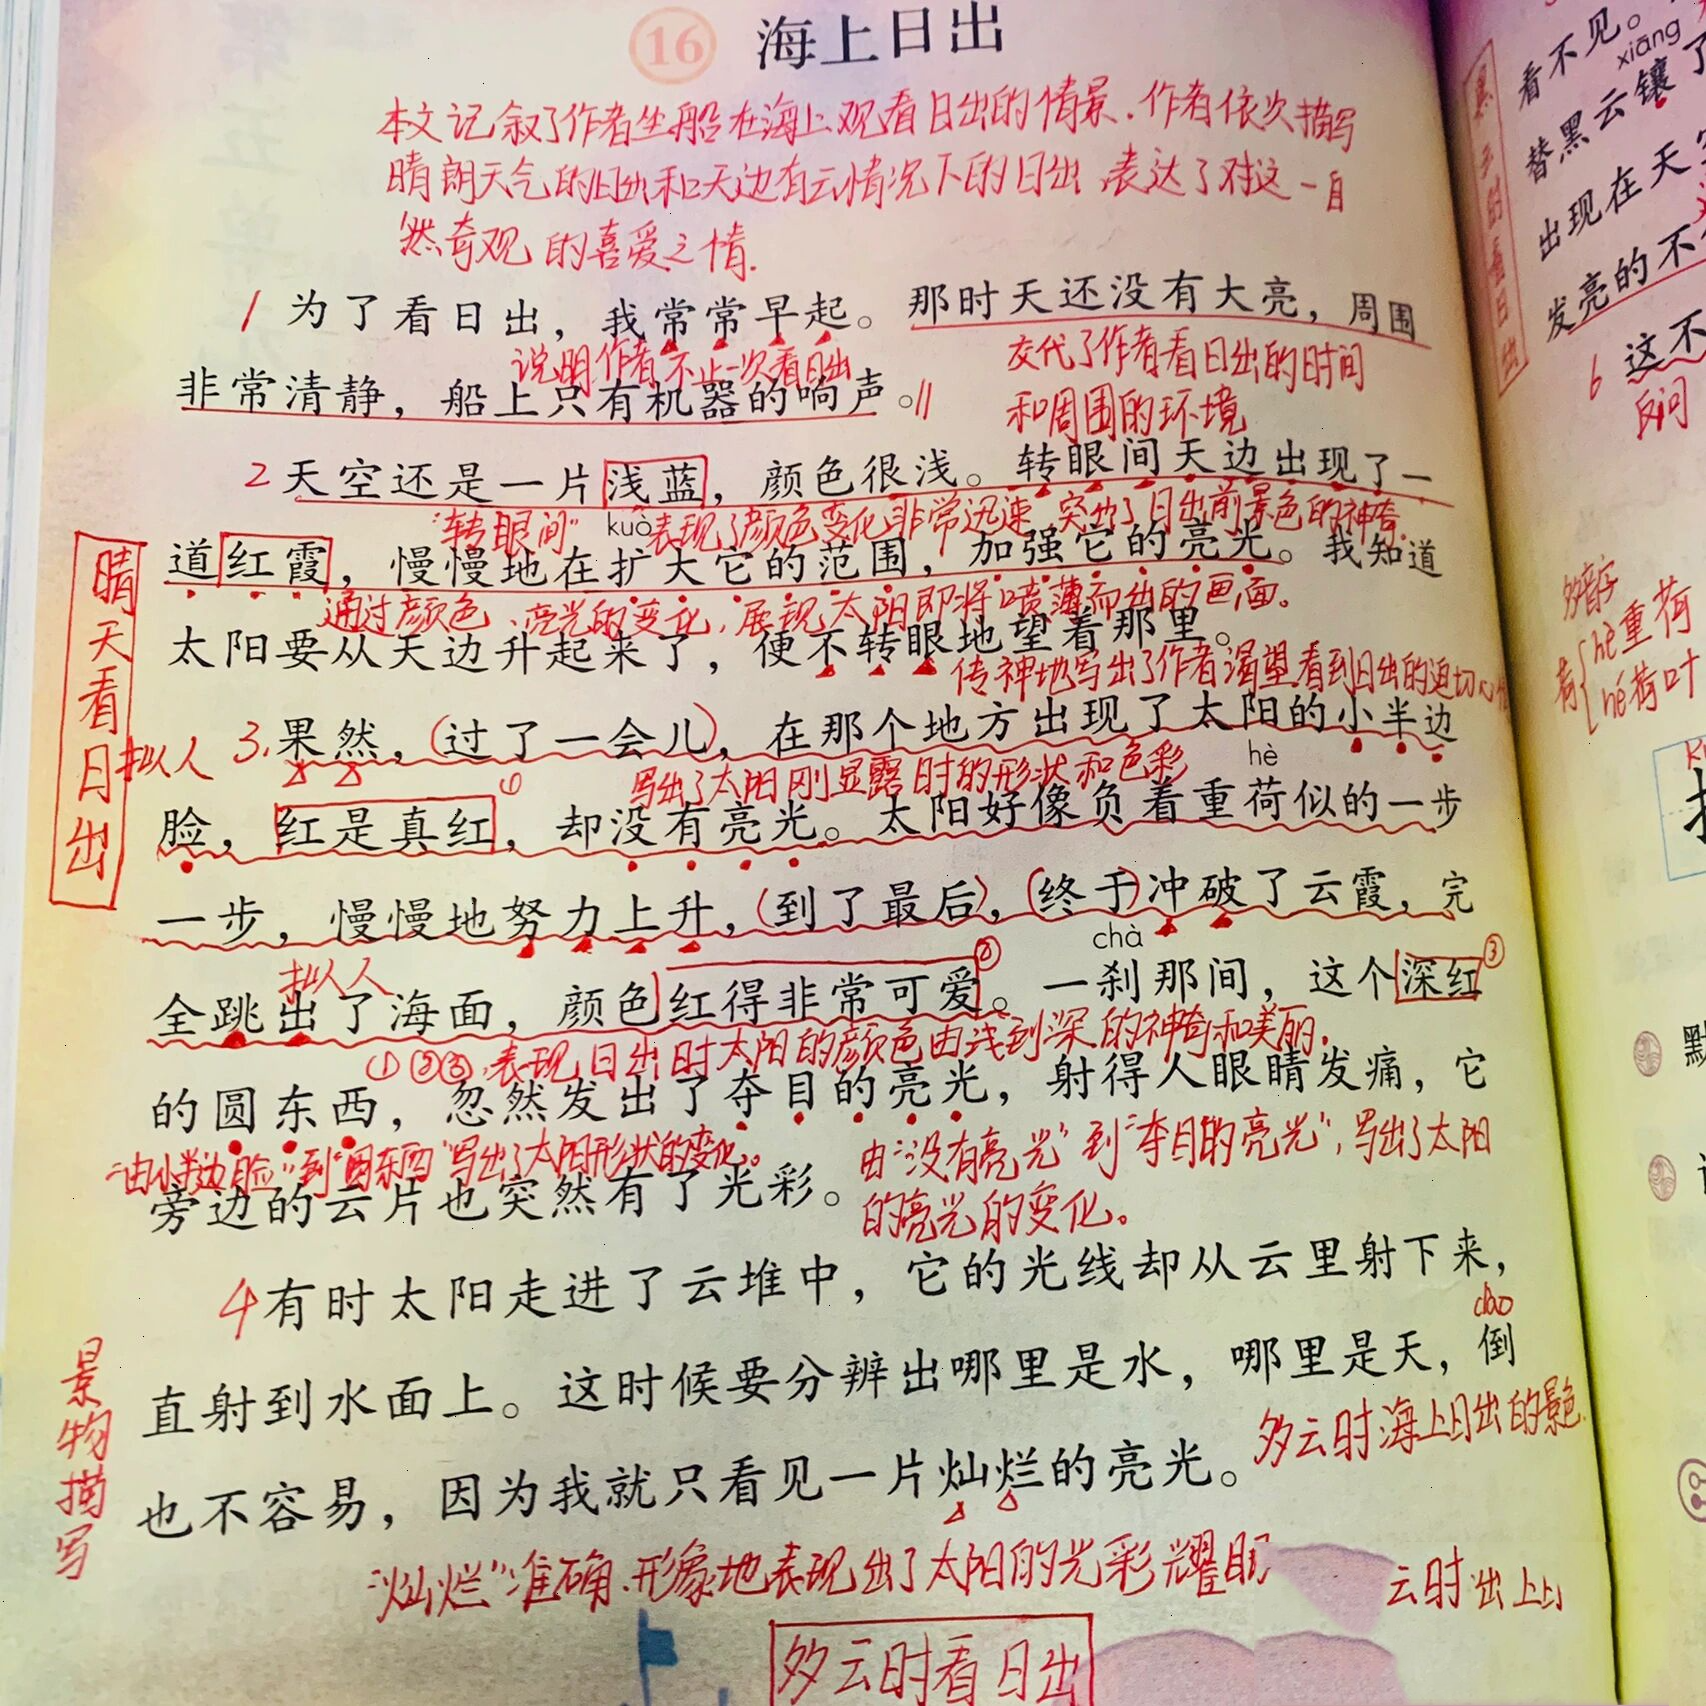 16 海上日出
本文记叙了作者坐船在海上观看日出的情景.作者依次描写
晴朗天气的日出和天边有云情况下的日出,表达了对这一自
然奇观的喜爱之情.
1 为了看日出，我常常早起。那时天还没有大亮，周围
说明作者不止一次看日出
交代了作者看日出的时间
和周围的环境
非常清静，船上只有机器的响声。
2 天空还是一片浅蓝，颜色很浅。转眼间天边出现了一
"转眼间" 表现了颜色变化非常迅速,突出了日出前景色的神奇.
kuò
道红霞，慢慢地在扩大它的范围，加强它的亮光。我知道
通过颜色、亮光的变化,展现太阳即将喷薄而出的画面。
太阳要从天边升起来了，便不转眼地望着那里。
传神地写出了作者渴望看到日出的迫切心情
晴天看日出
拟人
3.果然，(过了一会儿)，在那个地方出现了太阳的小半边
写出了太阳刚显露时的形状和色彩
hè
脸，红是真红，却没有亮光。太阳好像负着重荷似的一步
①
一步，慢慢地努力上升，(到了最后)，(终于)冲破了云霞，完
chà
拟人
②
③
全跳出了海面，颜色红得非常可爱。一刹那间，这个深红
①②③,表现日出时太阳的颜色由浅到深的神奇和美丽.
的圆东西，忽然发出了夺目的亮光，射得人眼睛发痛，它
"由小半边脸"到"圆东西"写出了太阳形状的变化。
由"没有亮光"到"夺目的亮光",写出了太阳
的亮光的变化。
旁边的云片也突然有了光彩。
4 有时太阳走进了云堆中，它的光线却从云里射下来，
dào
直射到水面上。这时候要分辨出哪里是水，哪里是天，倒
多云时海上日出的景色
也不容易，因为我就只看见一片灿烂的亮光。
"灿烂"准确.形象地表现出了太阳的光彩耀眼
景物描写
多云时看日出
看不见。
xiāng
替黑云镶了
出现在天空
发亮的不
6 这不
反问
多音字
荷
hè重荷
hé荷叶